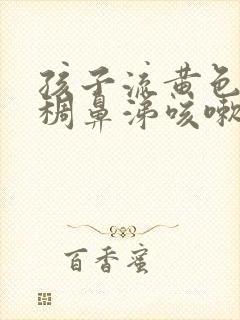 孩子流黄色
稠鼻涕咳嗽
百香蜜